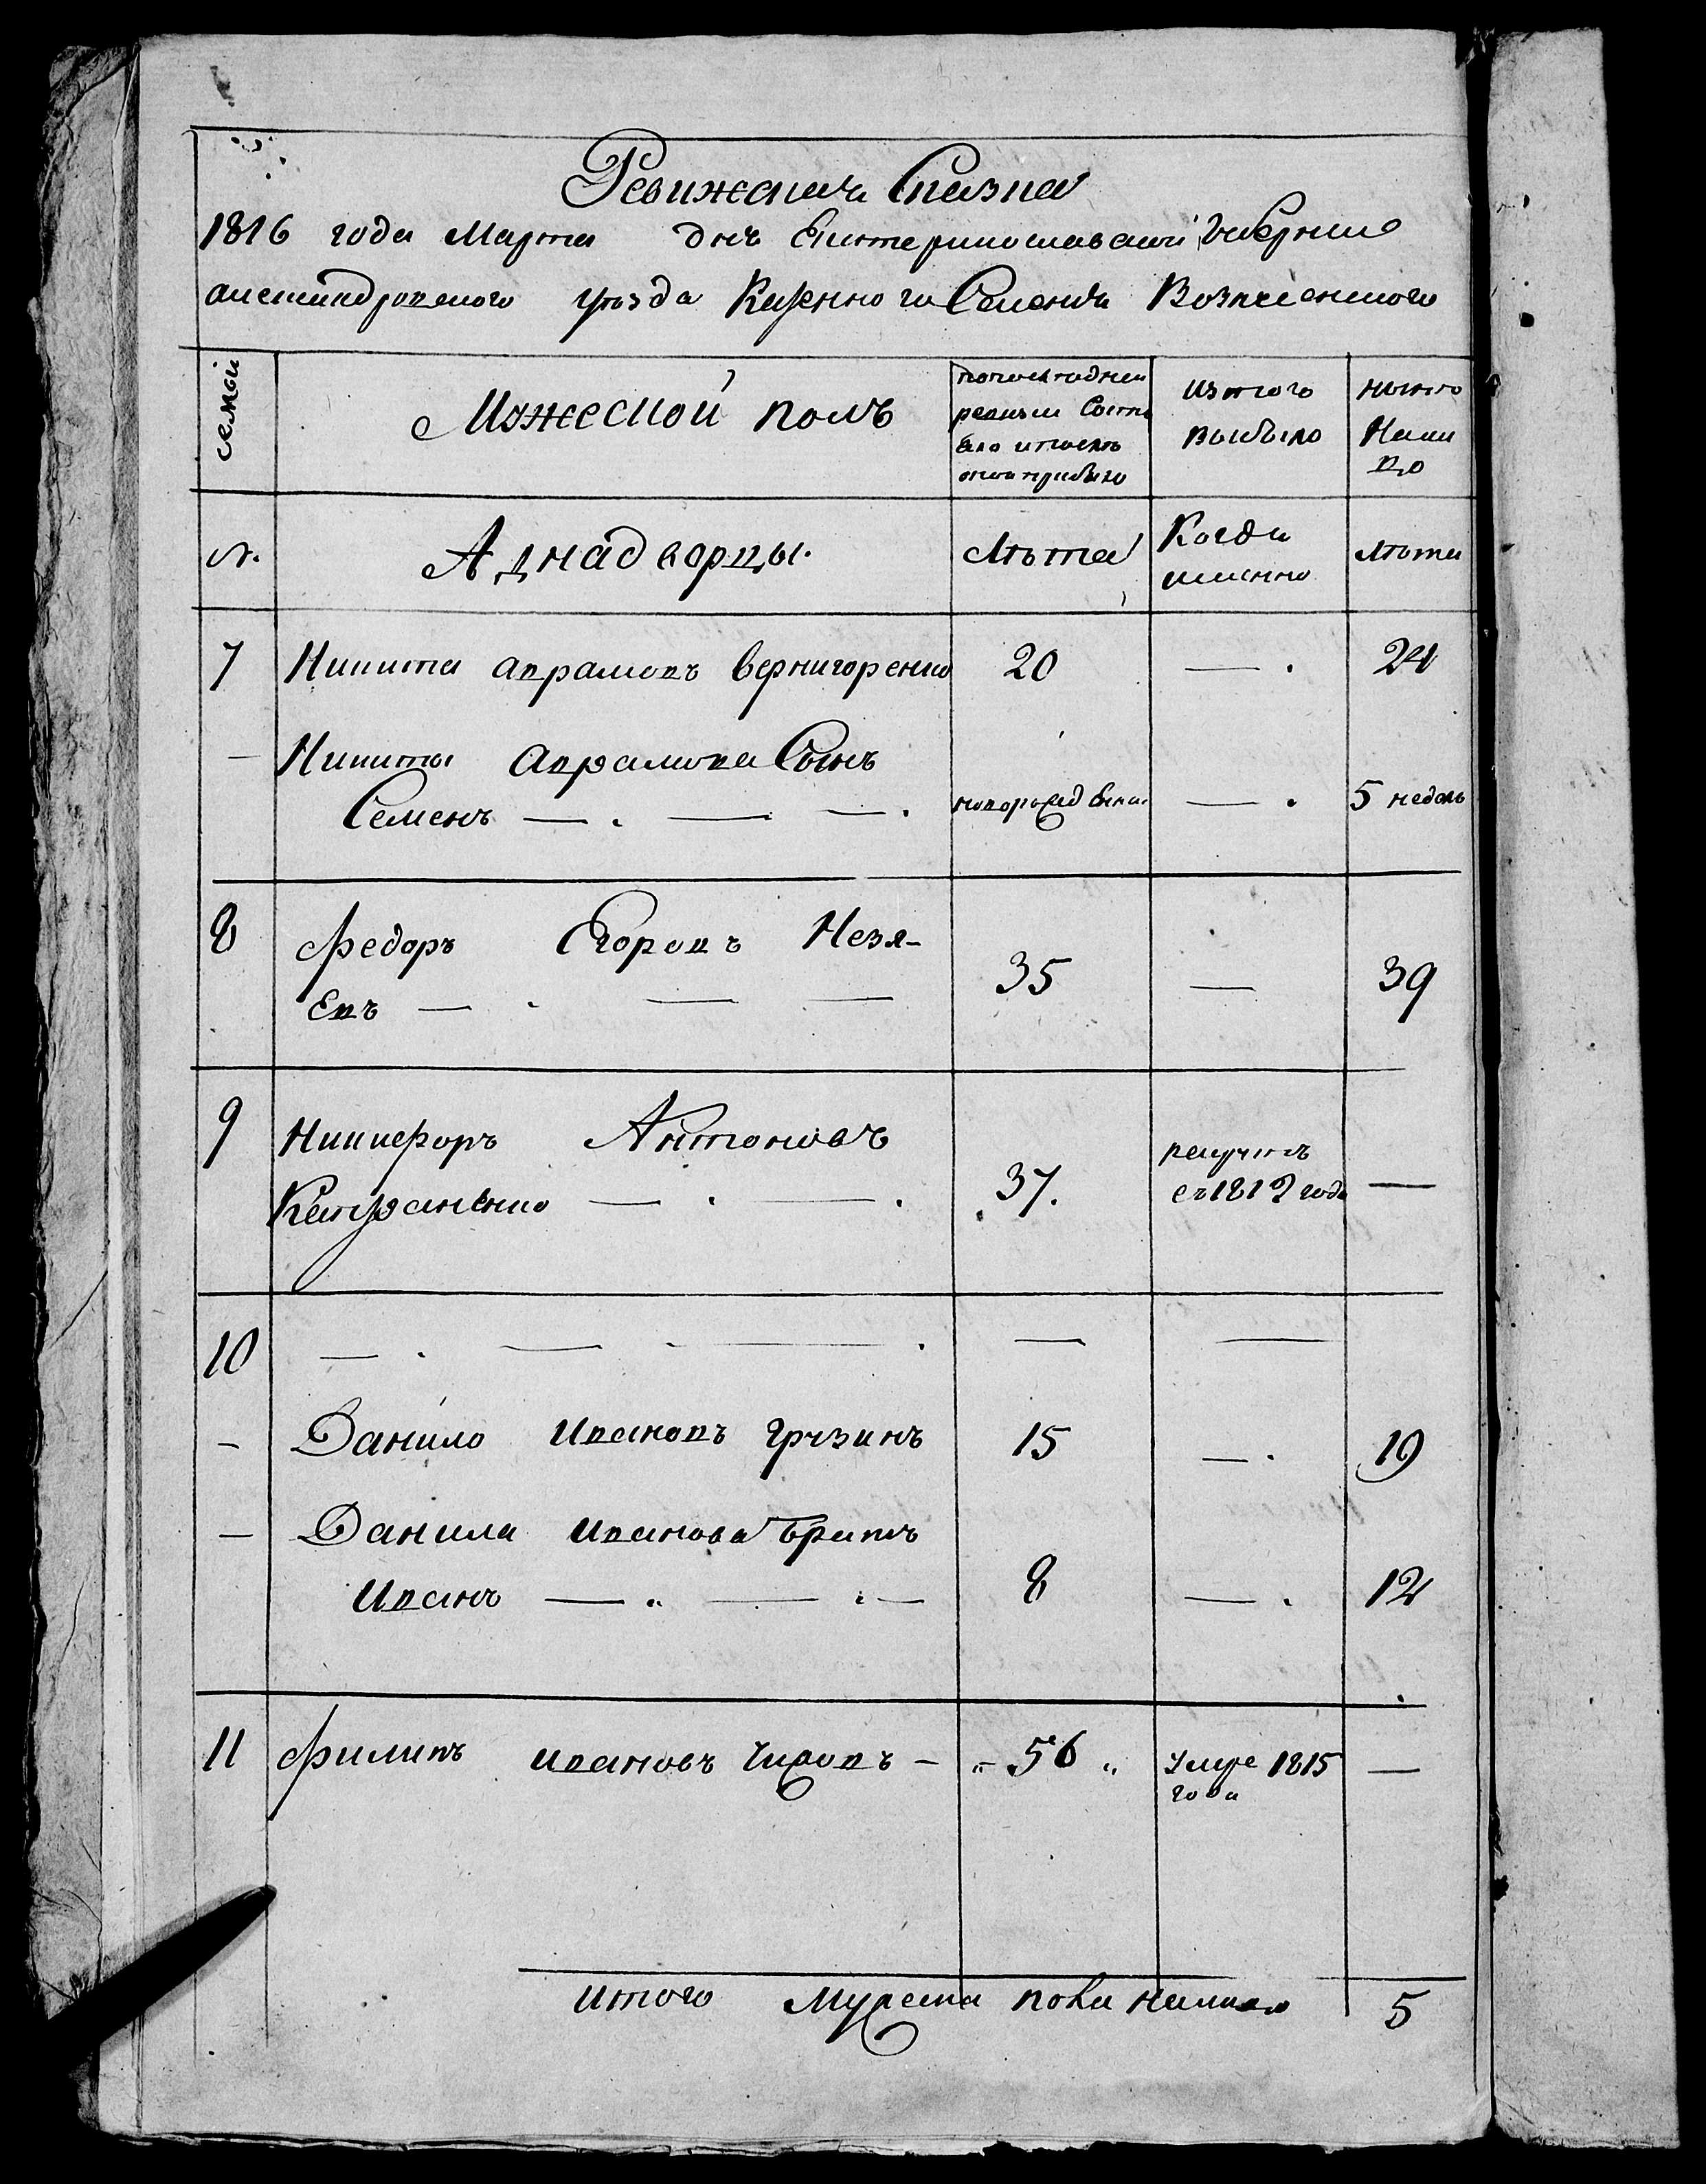 Ревижская Сказка
1816 года Марта днѧ Екатеринославской Губернии
александровского уѣзда Казенного Селения Вознесенского
семьи
Мужескои полъ
попоследнеи ревизии Состояло ипосле тои прибыло
изтого выбыло
ныне Налицо
№.
Аднадворцы.
Лѣта
Когда имянно
лѣта
7 Никита аврамовъ вернигоренко 20 — . 24
— Никиты аврамова Сынъ
Семенъ — . — — . новорожденъ — . 5 недель
8 Федоръ Егоровъ Незя-
Евъ — . — — 35 — 39
9 Никифоръ Антоновъ
— . — . 37. рекрутъ съ 1812 года —
10 — . — . — . — —
— Данило Ивановъ грузинъ 15 — . 19
— Данила Иванова братъ
Иванъ — .. — .. — 8 — . 12
11 Филипъ ивановъ Чиховъ — „ 56 „ Умре 1815 года —
Итого Мужеска пола налицо 5